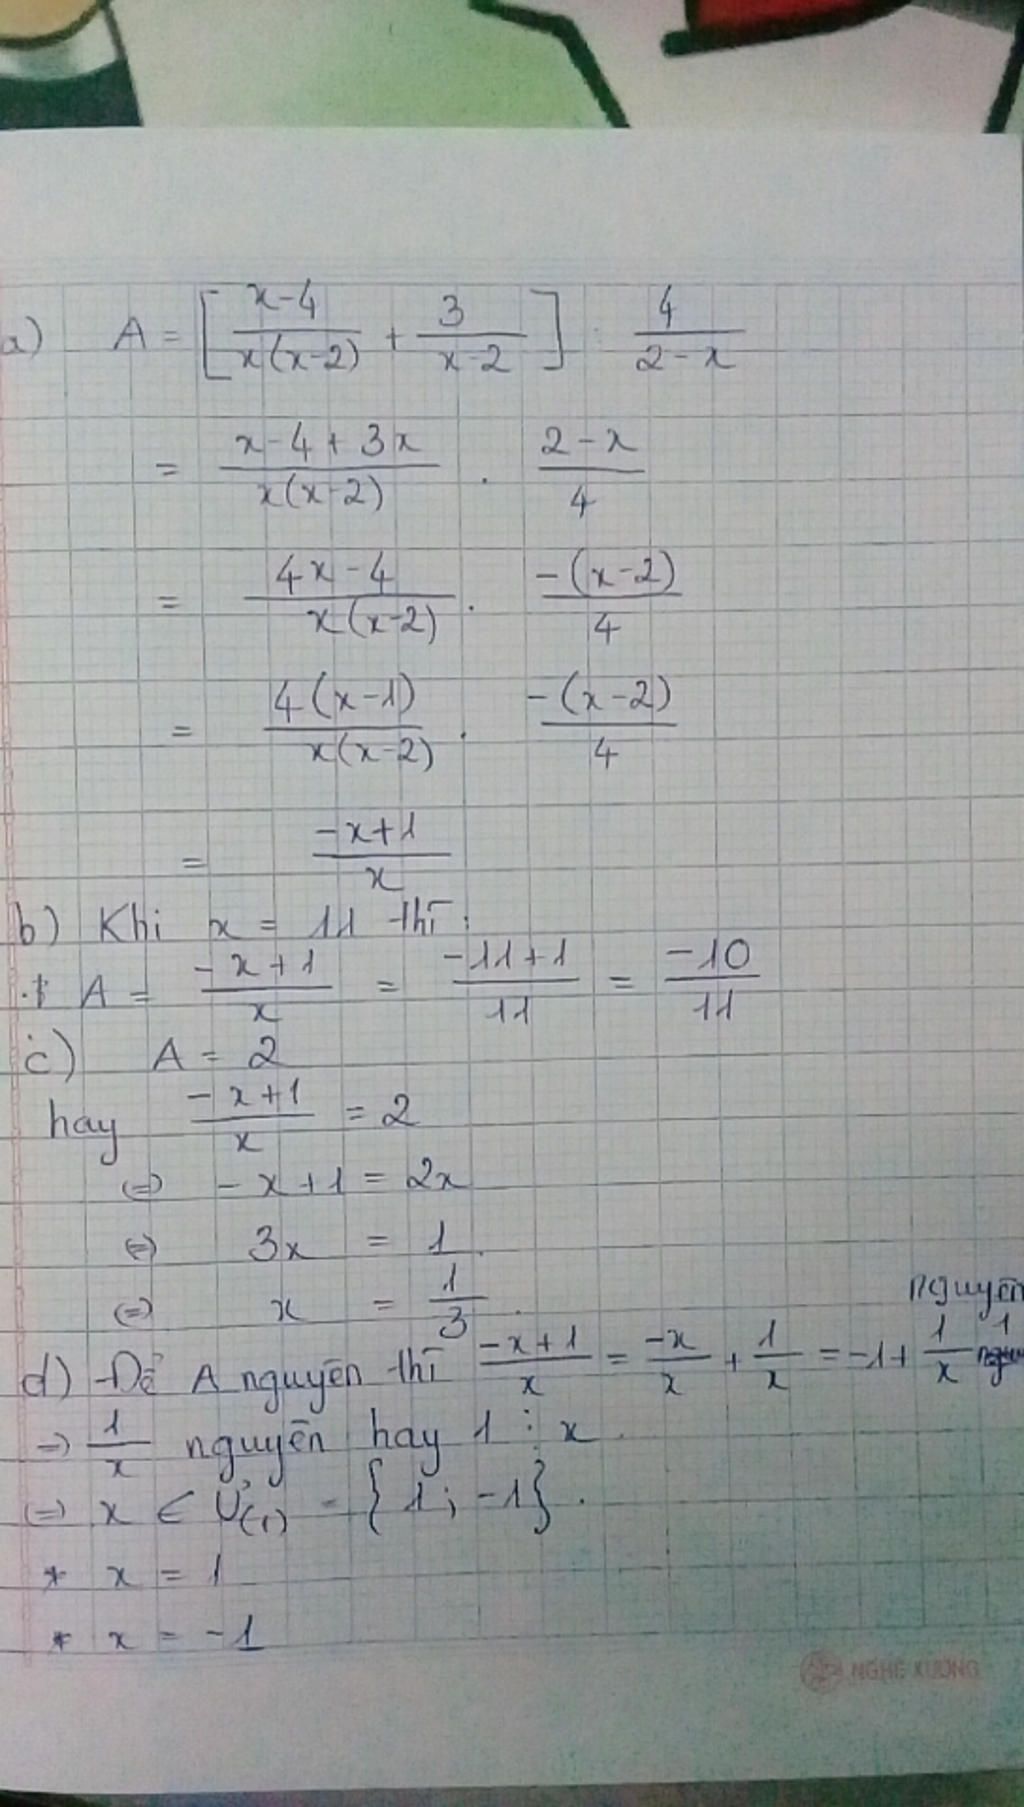 a) A = [ (x-4)/(x(x-2)) + 3/(x-2) ] : 4/(2-x)
= (x-4+3x)/(x(x-2)) . (2-x)/4
= (4x-4)/(x(x-2)) . (-(x-2))/4
= (4(x-1))/(x(x-2)) . (-(x-2))/4
= (-x+1)/x
b) Khi x = 11 thì:
A = (-x+1)/x = (-11+1)/11 = (-10)/11
c) A = 2
hay (-x+1)/x = 2
(=) -x+1 = 2x
(=) 3x = 1
(=) x = 1/3.
nguyên
d) Để A nguyên thì (-x+1)/x = (-x)/x + 1/x = -1 + 1/x
=) 1/x nguyên hay 1 ⋮ x.
(=) x ∈ Ư(1) = {1; -1}.
* x = 1
* x = -1
NGHE XUONG